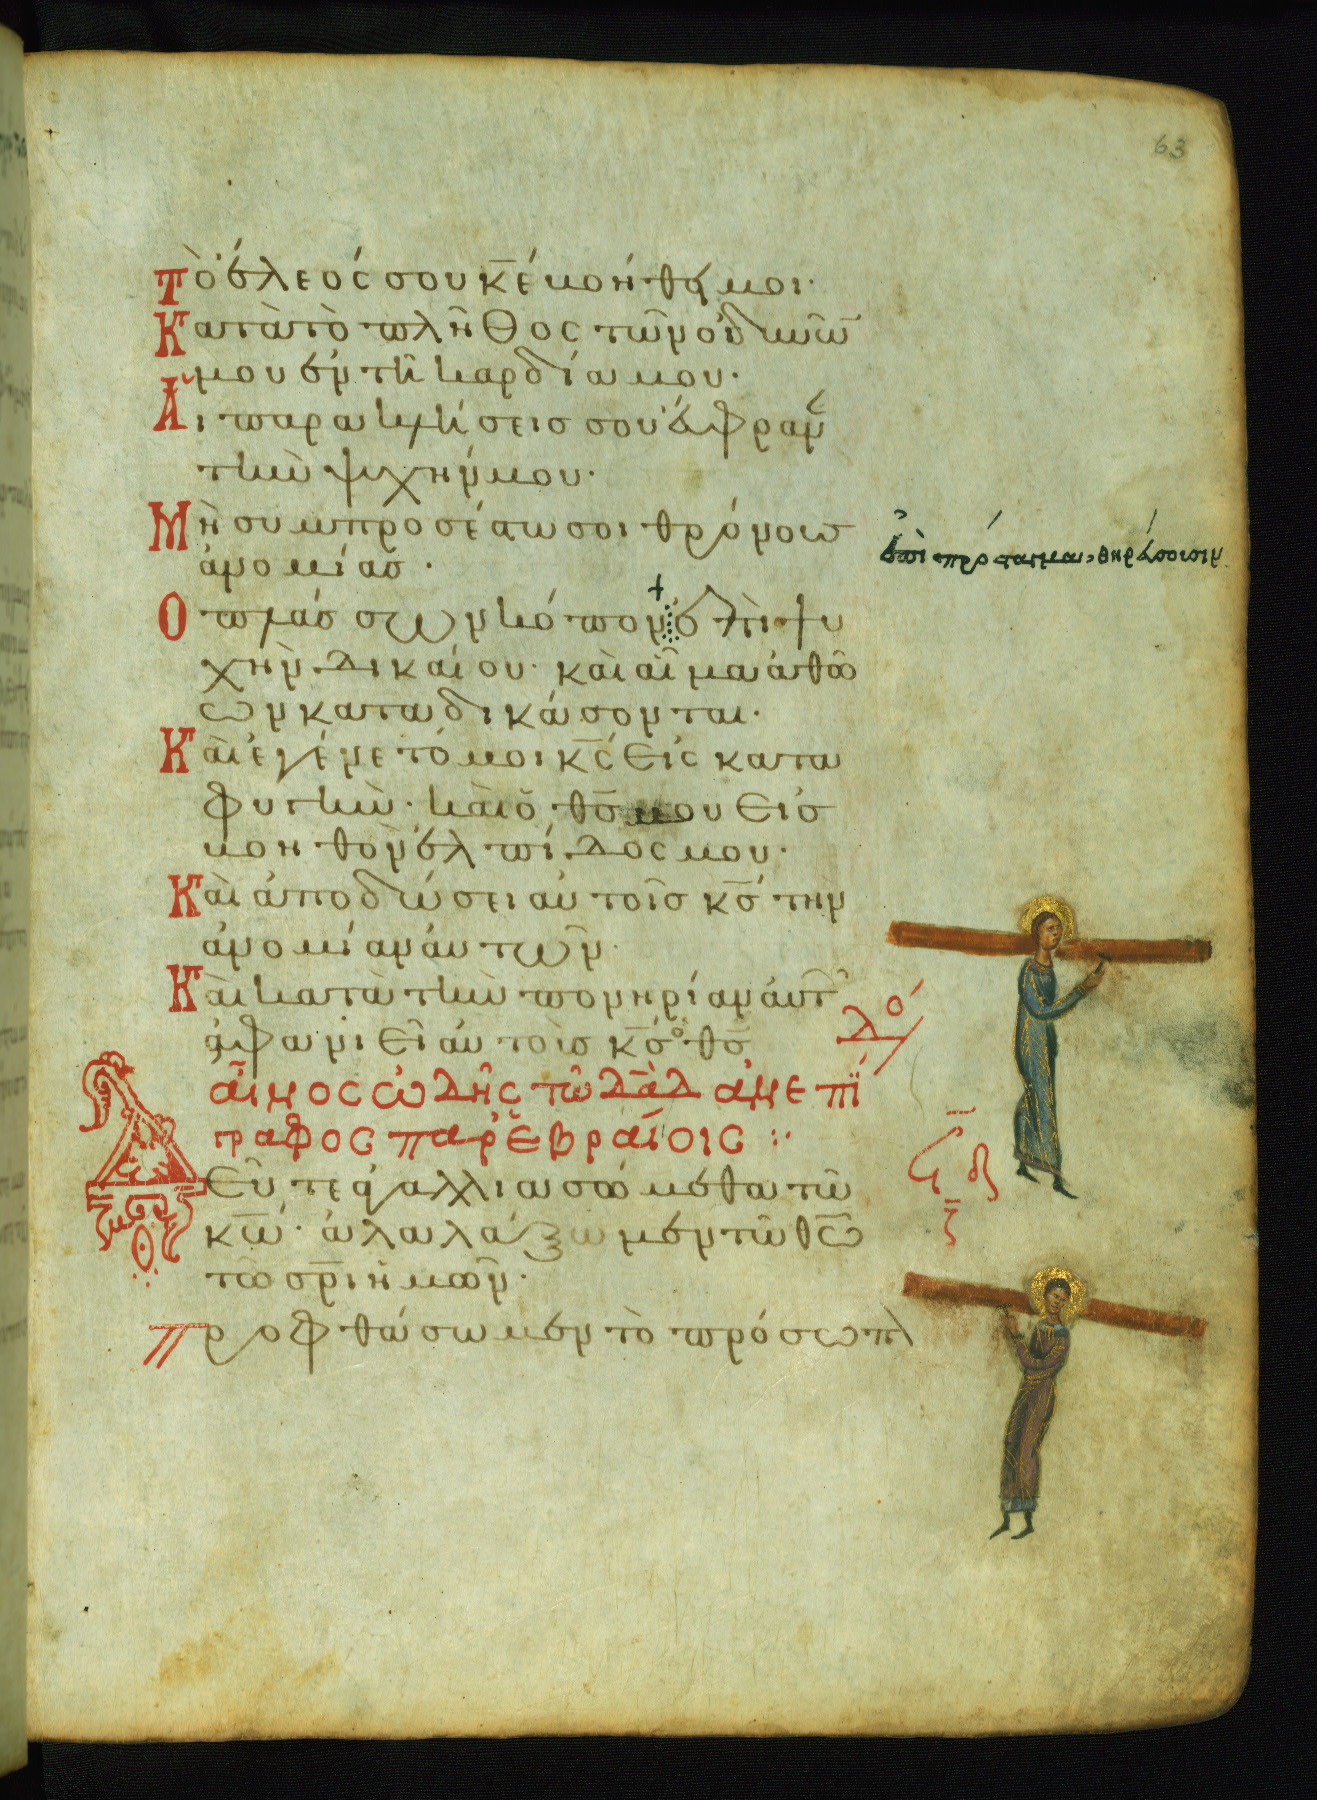 63
Τὸ ἔλεός σου κ̅ε̅ ἐβοήθει μοι·
Κατὰ τὸ πλῆθος τῶν ὀδυνῶ̅
μου ἐν τῇ καρδίᾳ μου·
Αἱ παρακλήσεις σου εὔφραναν
τὴν ψυχήν μου·
Μὴ συμπροσέσται σοι θρόνος
ἀνομίας·
Ο πλάσσων κόπον ἐπὶ
χὴν δικαίου· καὶ αἷμα ἀθῶ
ων καταδικάσονται·
Καὶ ἐγένετό μοι κ̅ς̅ εἰς κατα
φυγήν· καὶ ὁ θ̅ς̅ μου εἰς
βοηθὸν ἐλπίδος μου·
Καὶ ἀποδώσει αὐτοῖς κ̅ς̅ τὴν
ἀνομίαν αὐτῶν·
Καὶ κατὰ τὴν πονηρίαν αὐτ
ἀφανιεῖ αὐτοὺς κ̅ς̅ ὁ θ̅ς̅
αἶνος ὠδῆς τῶ δ̅α̅δ̅ ἀνεπί
γραφος παρ' ἑβραίοις
Δεῦτε ἀγαλλιασώμεθα τῶ
κ̅ω̅· ἀλαλάξωμεν τῶ θ̅ω̅
τῶ σ̅ρ̅ι ἡμῶν·
Προφθάσωμεν τὸ πρόσωπ